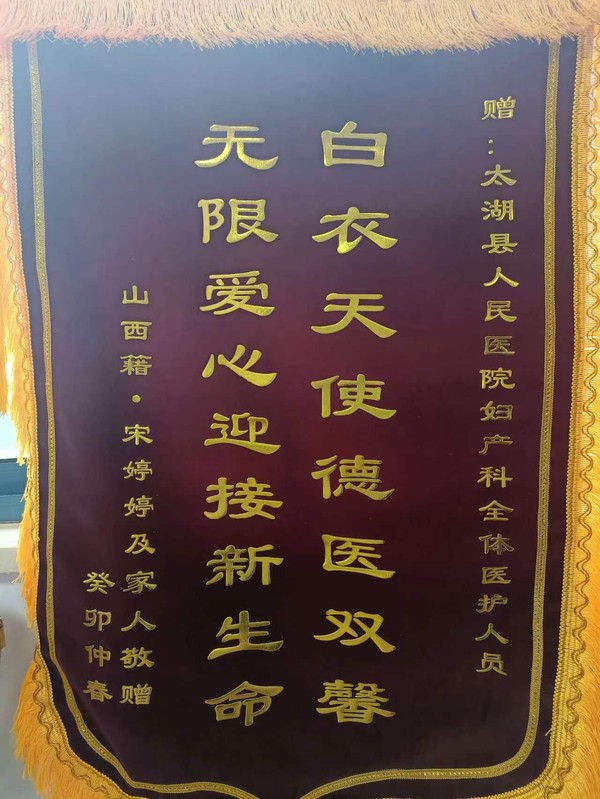 赠：太湖县人民医院妇产科全体医护人员
白衣天使德医双馨
无限爱心迎接新生命
山西籍·宋婷婷及家人敬赠
癸卯仲春